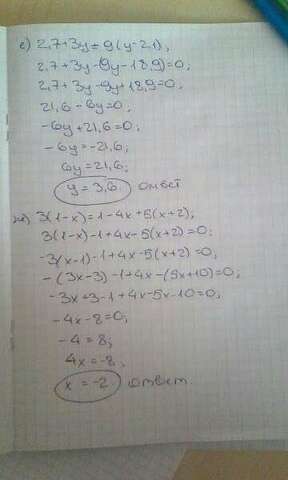 е) 2,7+3y=9(y-2,1);
2,7+3y-(9y-18,9)=0;
2,7+3y-9y+18,9=0;
21,6-6y=0;
-6y+21,6=0;
-6y=-21,6;
6y=21,6;
y=3,6. ответ
ж) 3(1-x)=1-4x+5(x+2);
3(1-x)-1+4x-5(x+2)=0;
-3(x-1)-1+4x-5(x+2)=0;
-(3x-3)-1+4x-(5x+10)=0;
-3x+3-1+4x-5x-10=0;
-4x-8=0;
-4=8;
4x=-8;
x=-2 ответ.